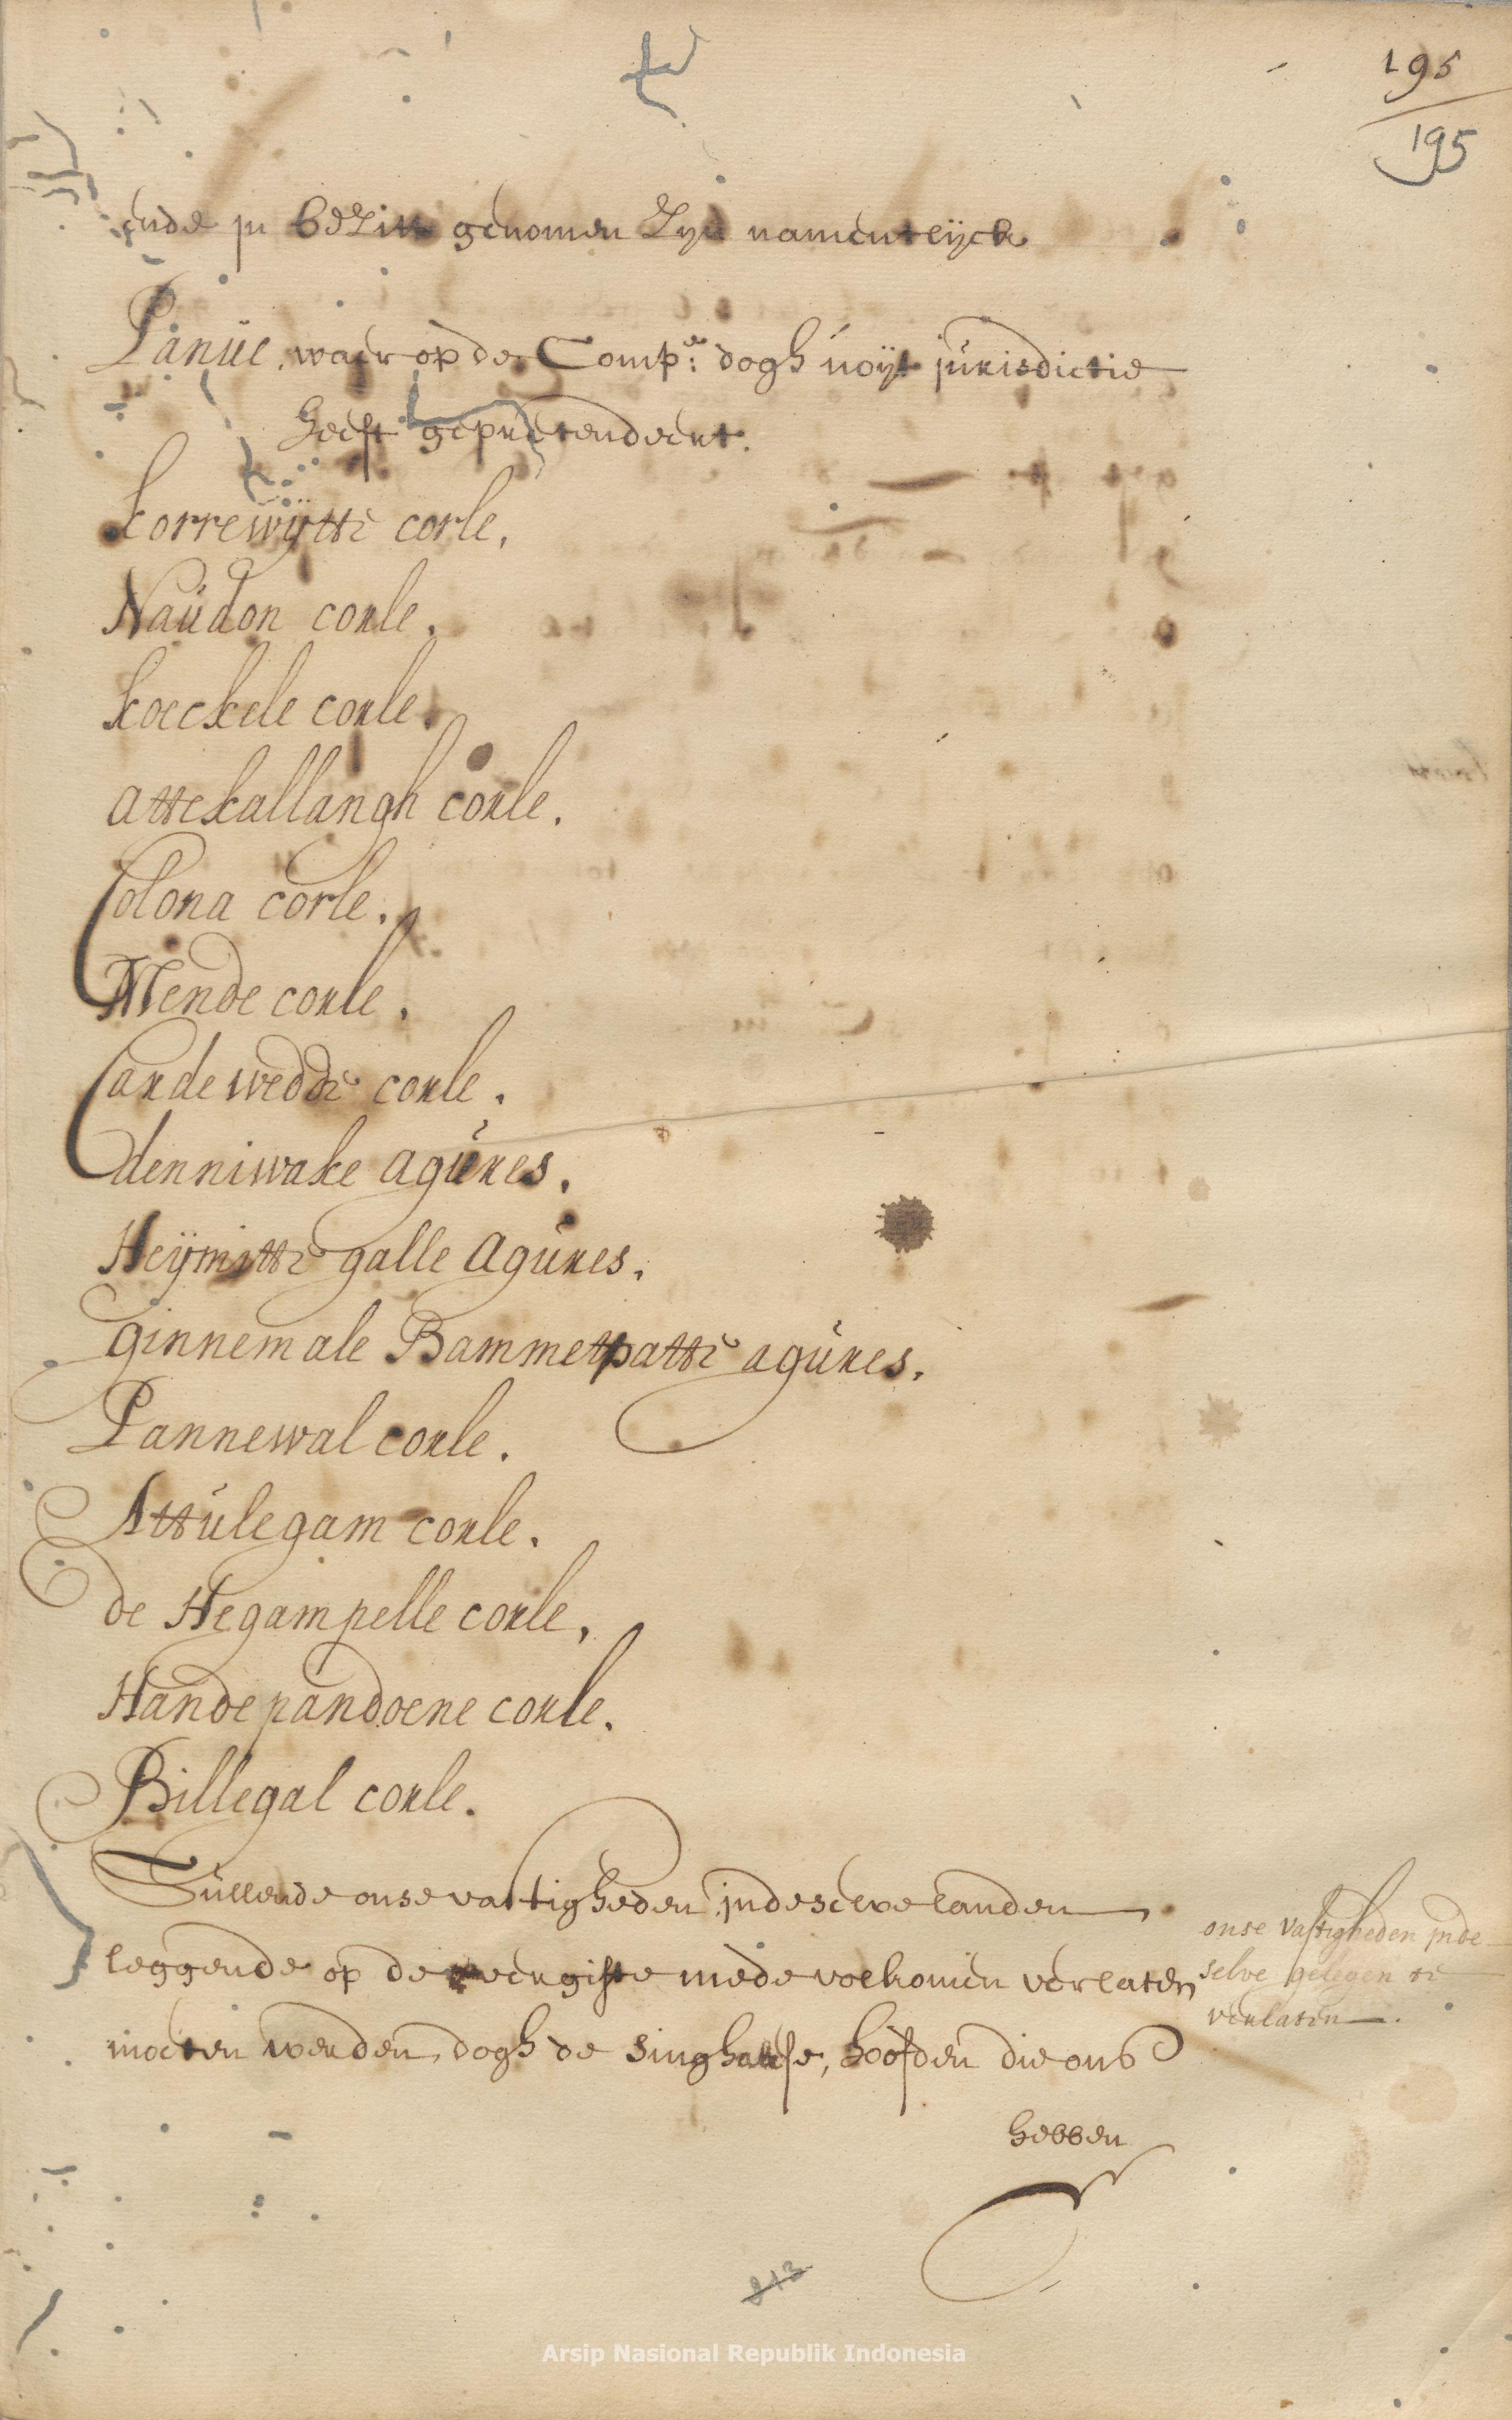 195
195
ende in bezitt genomen zyn namentlijck
Panue, waer op de Comp:e dogh noijt jurisdictie
heeft gepretendeert.
korrewijtte corle,
Naudon corle,
koeckele corle,
attekallangh corle.
Colona corle.
Mende corle.
Candewedde corle.
denniwake agures.
Heijmitte galle agures.
ginnemale Bammetpatte agures.
Pannewal corle.
Attulegam corle.
de Hegampelle corle,
Handepandoene corle.
Billegal corle.
Sullende onse vastigheden jndeselve landen
leggende op de eergiste mede volkomen verlaten
moeten werden, dogh de Singhaleese, hoofden die ons
hebben
onse vastigheden jnde
selve gelegen te
verlaten.
813
Arsip Nasional Republik Indonesia